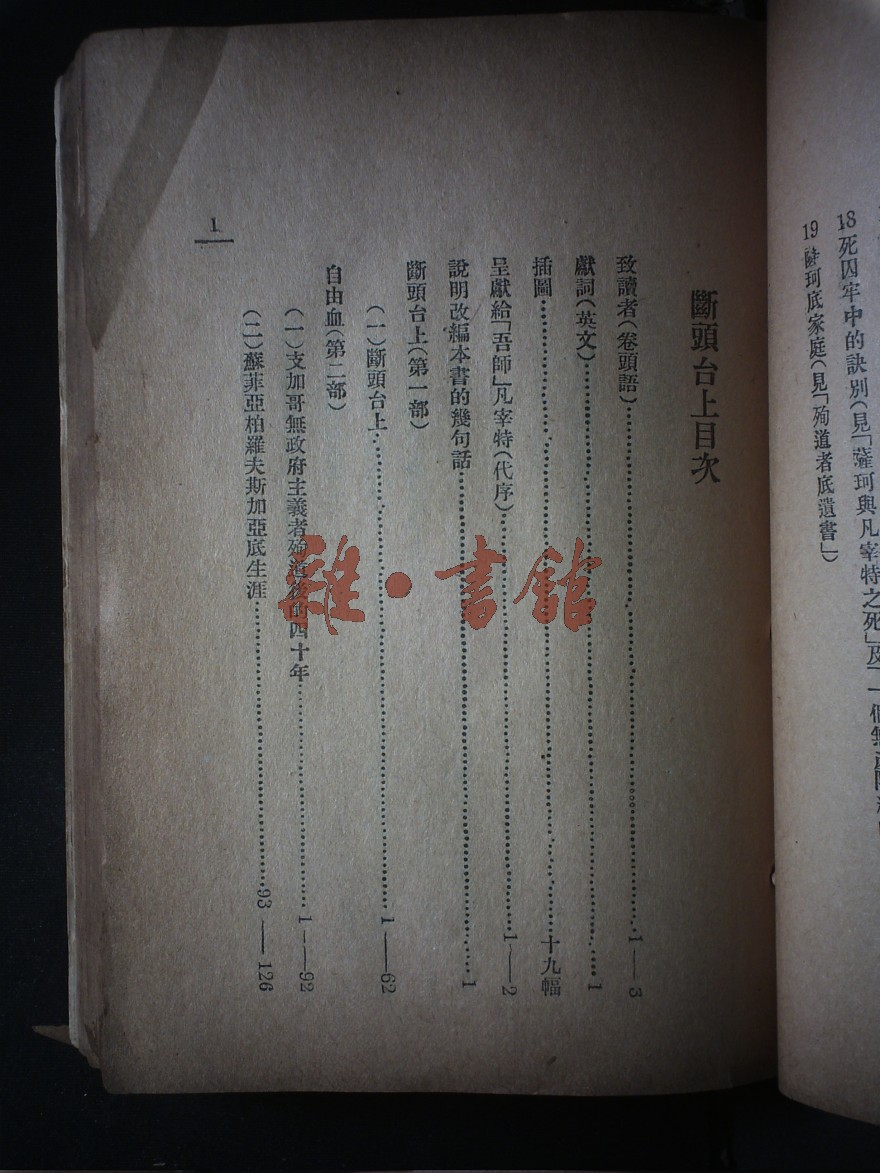 18 死囚牢中的訣別(見「薩珂與凡宰特之死」及「一個無
19 薩珂底家庭(見「殉道者底遺書」)
斷頭台上目次
致讀者(卷頭語)……1——3
獻詞(英文)……1
插圖……十九幅
呈獻給「吾師」凡宰特(代序)……1——2
說明改編本書的幾句話……1
斷頭台上(第一部)
(一)斷頭台上……1——62
自由血(第二部)
(一)支加哥無政府主義者殉道後的四十年……1——92
(二)蘇菲亞柏羅夫斯加亞底生涯……93——126
1
雜·書館